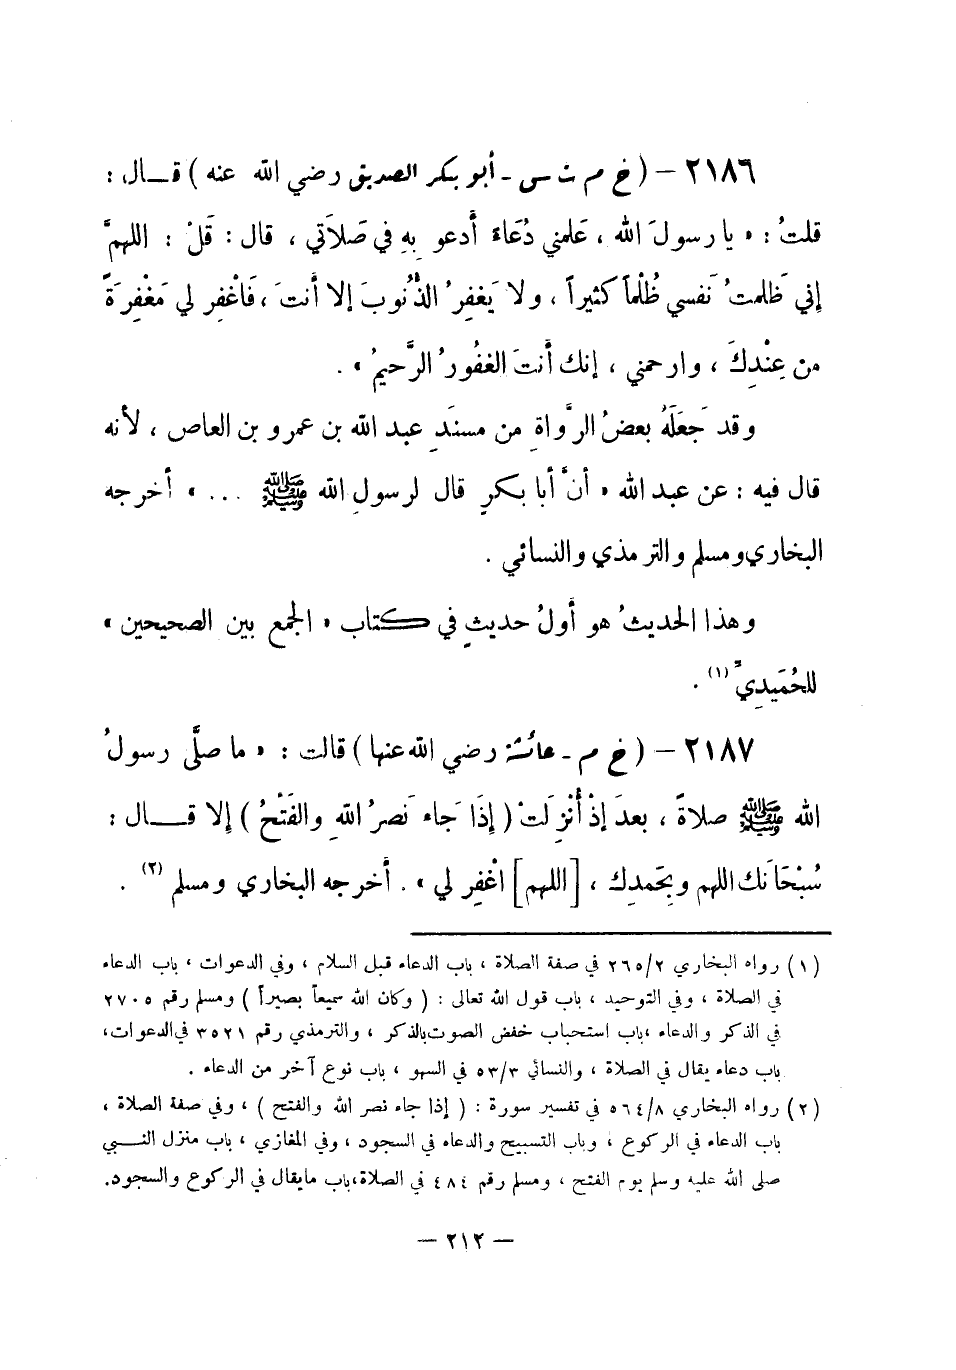 ٢١٨٦ – ( خ م ت س - أبو بكر الصديق رضي الله عنه ) قـــال :
قلتُ : « يا رسولَ الله ، عَلمني دُعَاءَ أَدعو بِهِ في صَلاَتي ، قال : قَلْ : اللهمَّ
إني ظَلمتُ نَفسي ظُلْماً كثيراً ، ولا يَغفِرُ الذُّنُوبَ إلا أنتَ ، فَاغْفِر لي مَغْفِرَةً
من عِنْدِكَ ، وارحمني ، إنك أنتَ الغفُورُ الرَّحيمُ » .
وقد جَعَلَهُ بعضُ الرَّواةِ من مسنَدِ عبد الله بن عمرو بن العاص ، لأنه
قال فيه : عن عبد الله « أنَّ أبا بكرٍ قال لرسولِ الله ﷺ ... » أخرجه
البخاري ومسلم والترمذي والنسائي .
وهذا الحديثُ هو أولُ حديثٍ في كتاب « الجمع بين الصحيحين »
للحُمَيدِيِّ (١) .
٢١٨٧ – ( خ م - عائشة رضي الله عنها ) قالت : « ما صلَّى رسولُ
الله ﷺ صلاةً ، بعدَ إذْ أُنْزِلَتْ ( إِذَا جَاءَ نَصرُ اللهِ والفَتْحُ ) إِلا قـــال :
سُبْحَانَك اللهم وبِحَمدِك ، [اللهم] اغْفِر لي » . أخرجه البخاري ومسلم (٢) .
(١) رواه البخاري ٢٦٥/٢ في صفة الصلاة ، باب الدعاء قبل السلام ، وفي الدعوات ، باب الدعاء
في الصلاة ، وفي التوحيد ، باب قول الله تعالى : ( وكان الله سميعاً بصيراً ) ومسلم رقم ٢٧٠٥
في الذكر والدعاء ، باب استحباب خفض الصوت بالذكر ، والترمذي رقم ٣٥٢١ في الدعوات ،
باب دعاء يقال في الصلاة ، والنسائي ٥٣/٣ في السهو ، باب نوع آخر من الدعاء .
(٢) رواه البخاري ٥٦٤/٨ في تفسير سورة : ( إذا جاء نصر الله والفتح ) ، وفي صفة الصلاة ،
باب الدعاء في الركوع ، وباب التسبيح والدعاء في السجود ، وفي المغازي ، باب منزل النـــبي
صلى الله عليه وسلم يوم الفتح ، ومسلم رقم ٤٨٤ في الصلاة، باب مايقال في الركوع والسجود.
– ٢١٢ –